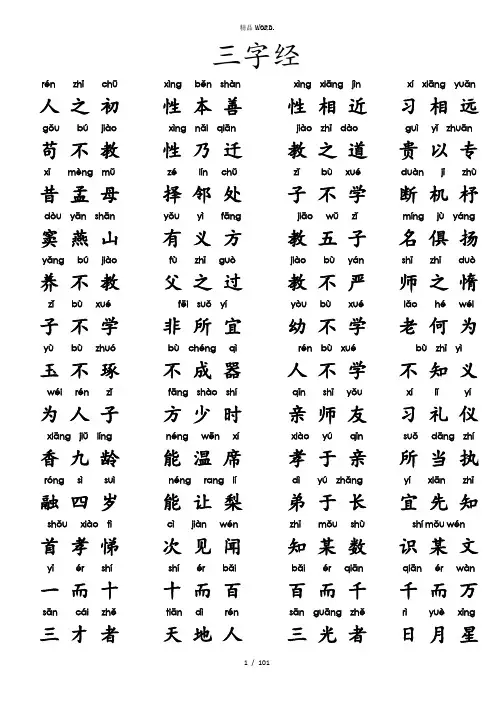 精品 WORD.
三字经
rén zhī chū xìng běn shàn xìng xiāng jìn xí xiāng yuǎn
人之初 性本善 性相近 习相远
gǒu bú jiào xìng nǎi qiān jiào zhī dào guì yǐ zhuān
苟不教 性乃迁 教之道 贵以专
xī mèng mǔ zé lín chǔ zǐ bù xué duàn jī zhù
昔孟母 择邻处 子不学 断机杼
dòu yān shān yǒu yì fāng jiāo wǔ zǐ míng jù yáng
窦燕山 有义方 教五子 名俱扬
yǎng bú jiào fù zhī guò jiào bù yán shī zhī duò
养不教 父之过 教不严 师之惰
zǐ bù xué fēi suǒ yí yòu bù xué lǎo hé wéi
子不学 非所宜 幼不学 老何为
yù bù zhuó bù chéng qì rén bù xué bù zhī yì
玉不琢 不成器 人不学 不知义
wéi rén zǐ fāng shào shí qīn shī yǒu xí lǐ yí
为人子 方少时 亲师友 习礼仪
xiāng jiǔ líng néng wēn xí xiào yú qīn suǒ dāng zhí
香九龄 能温席 孝于亲 所当执
róng sì suì néng rang lí dì yú zhǎng yí xiān zhī
融四岁 能让梨 弟于长 宜先知
shǒu xiào tì cì jiàn wén zhī mǒu shù shí mǒu wén
首孝悌 次见闻 知某数 识某文
yī ér shí shí ér bǎi bǎi ér qiān qiān ér wàn
一而十 十而百 百而千 千而万
sān cái zhě tiān dì rén sān guāng zhě rì yuè xīng
三才者 天地人 三光者 日月星
1 / 101